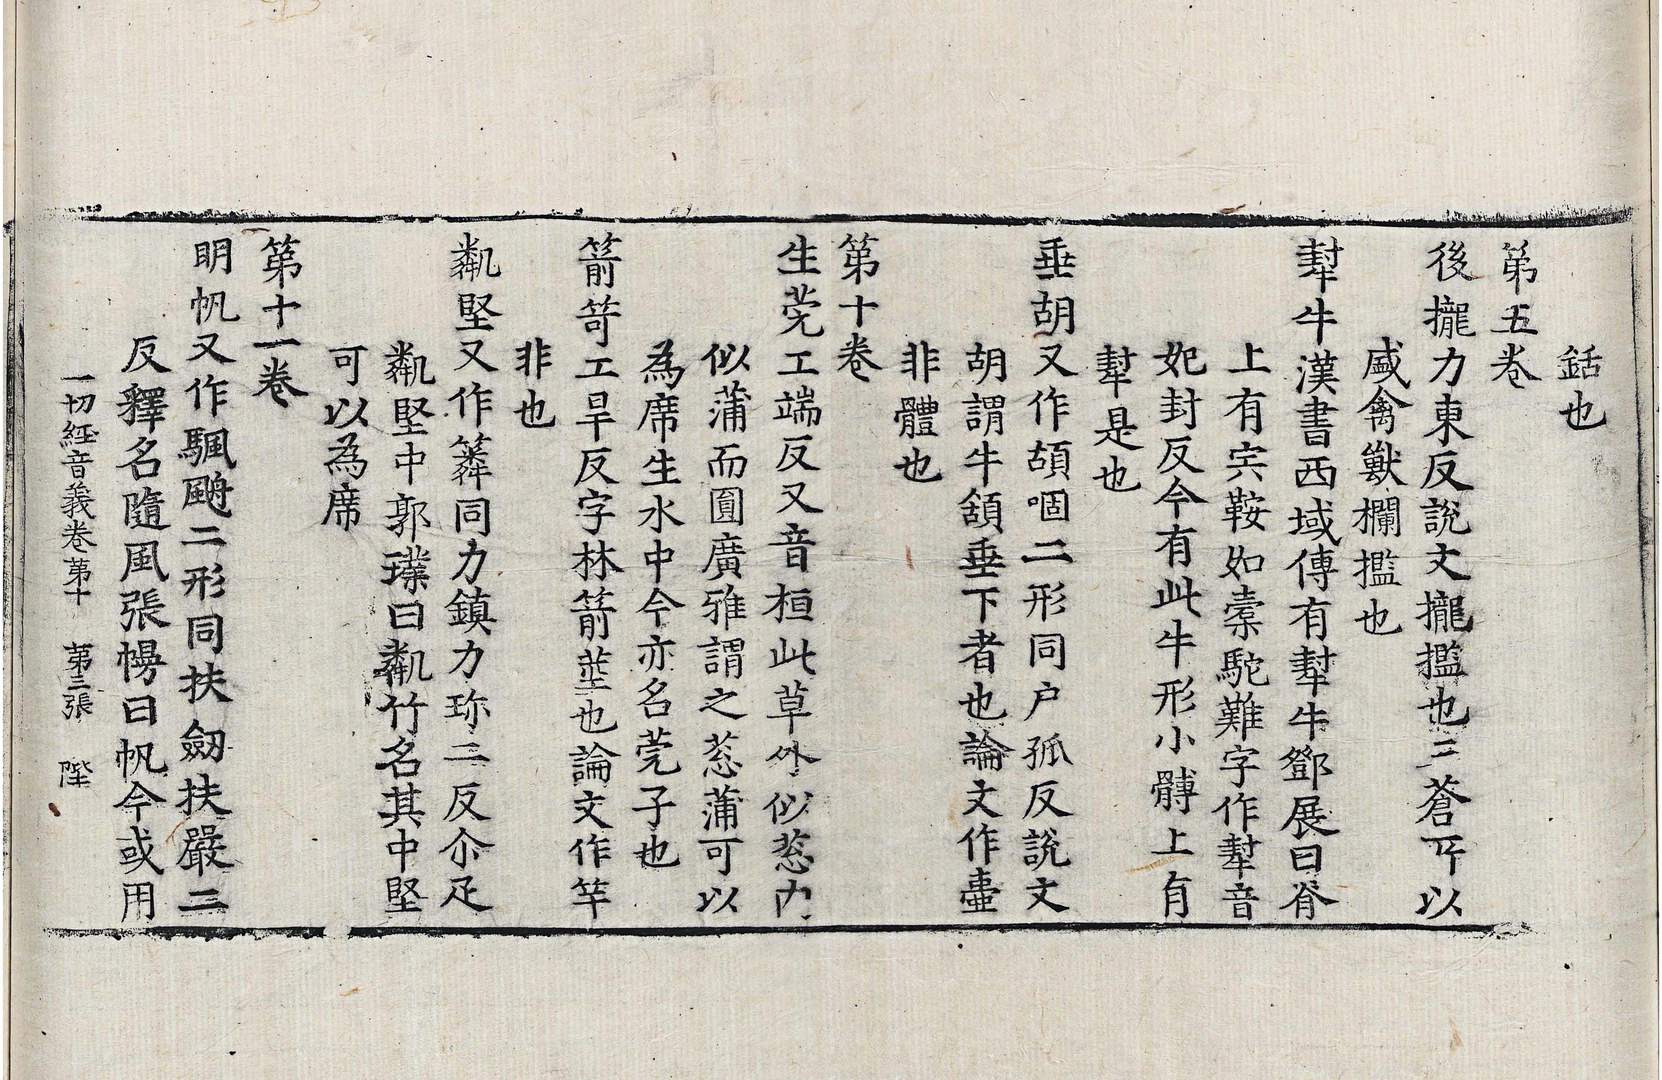 銛也
第五卷
後攏力東反說文攏㯺也三蒼所以
盛禽獸欄檻也
犎牛漢書西域傳有犎牛鄧展曰脊
上有肉鞍如橐駝難字作犎音
妃封反今有此牛形小髆上有
犎是也
垂胡又作頡咽二形同户孤反說文
胡謂牛頷垂下者也論文作壷
非體也
第十卷
生莞工端反又音桓此草外似葱内
似蒲而圓廣雅謂之葱蒲可以
為席生水中今亦名莞子也
箭笴工旱反字林箭莖也論文作竿
非也
粼堅又作簩同力鎮力珎二反尒疋
粼堅中郭璞曰粼竹名其中堅
可以為席
第十一卷
明帆又作颿䬙二形同扶劒扶嚴二
反釋名隨風張幔曰帆今或用
一切經音義卷第十 第三張 陛